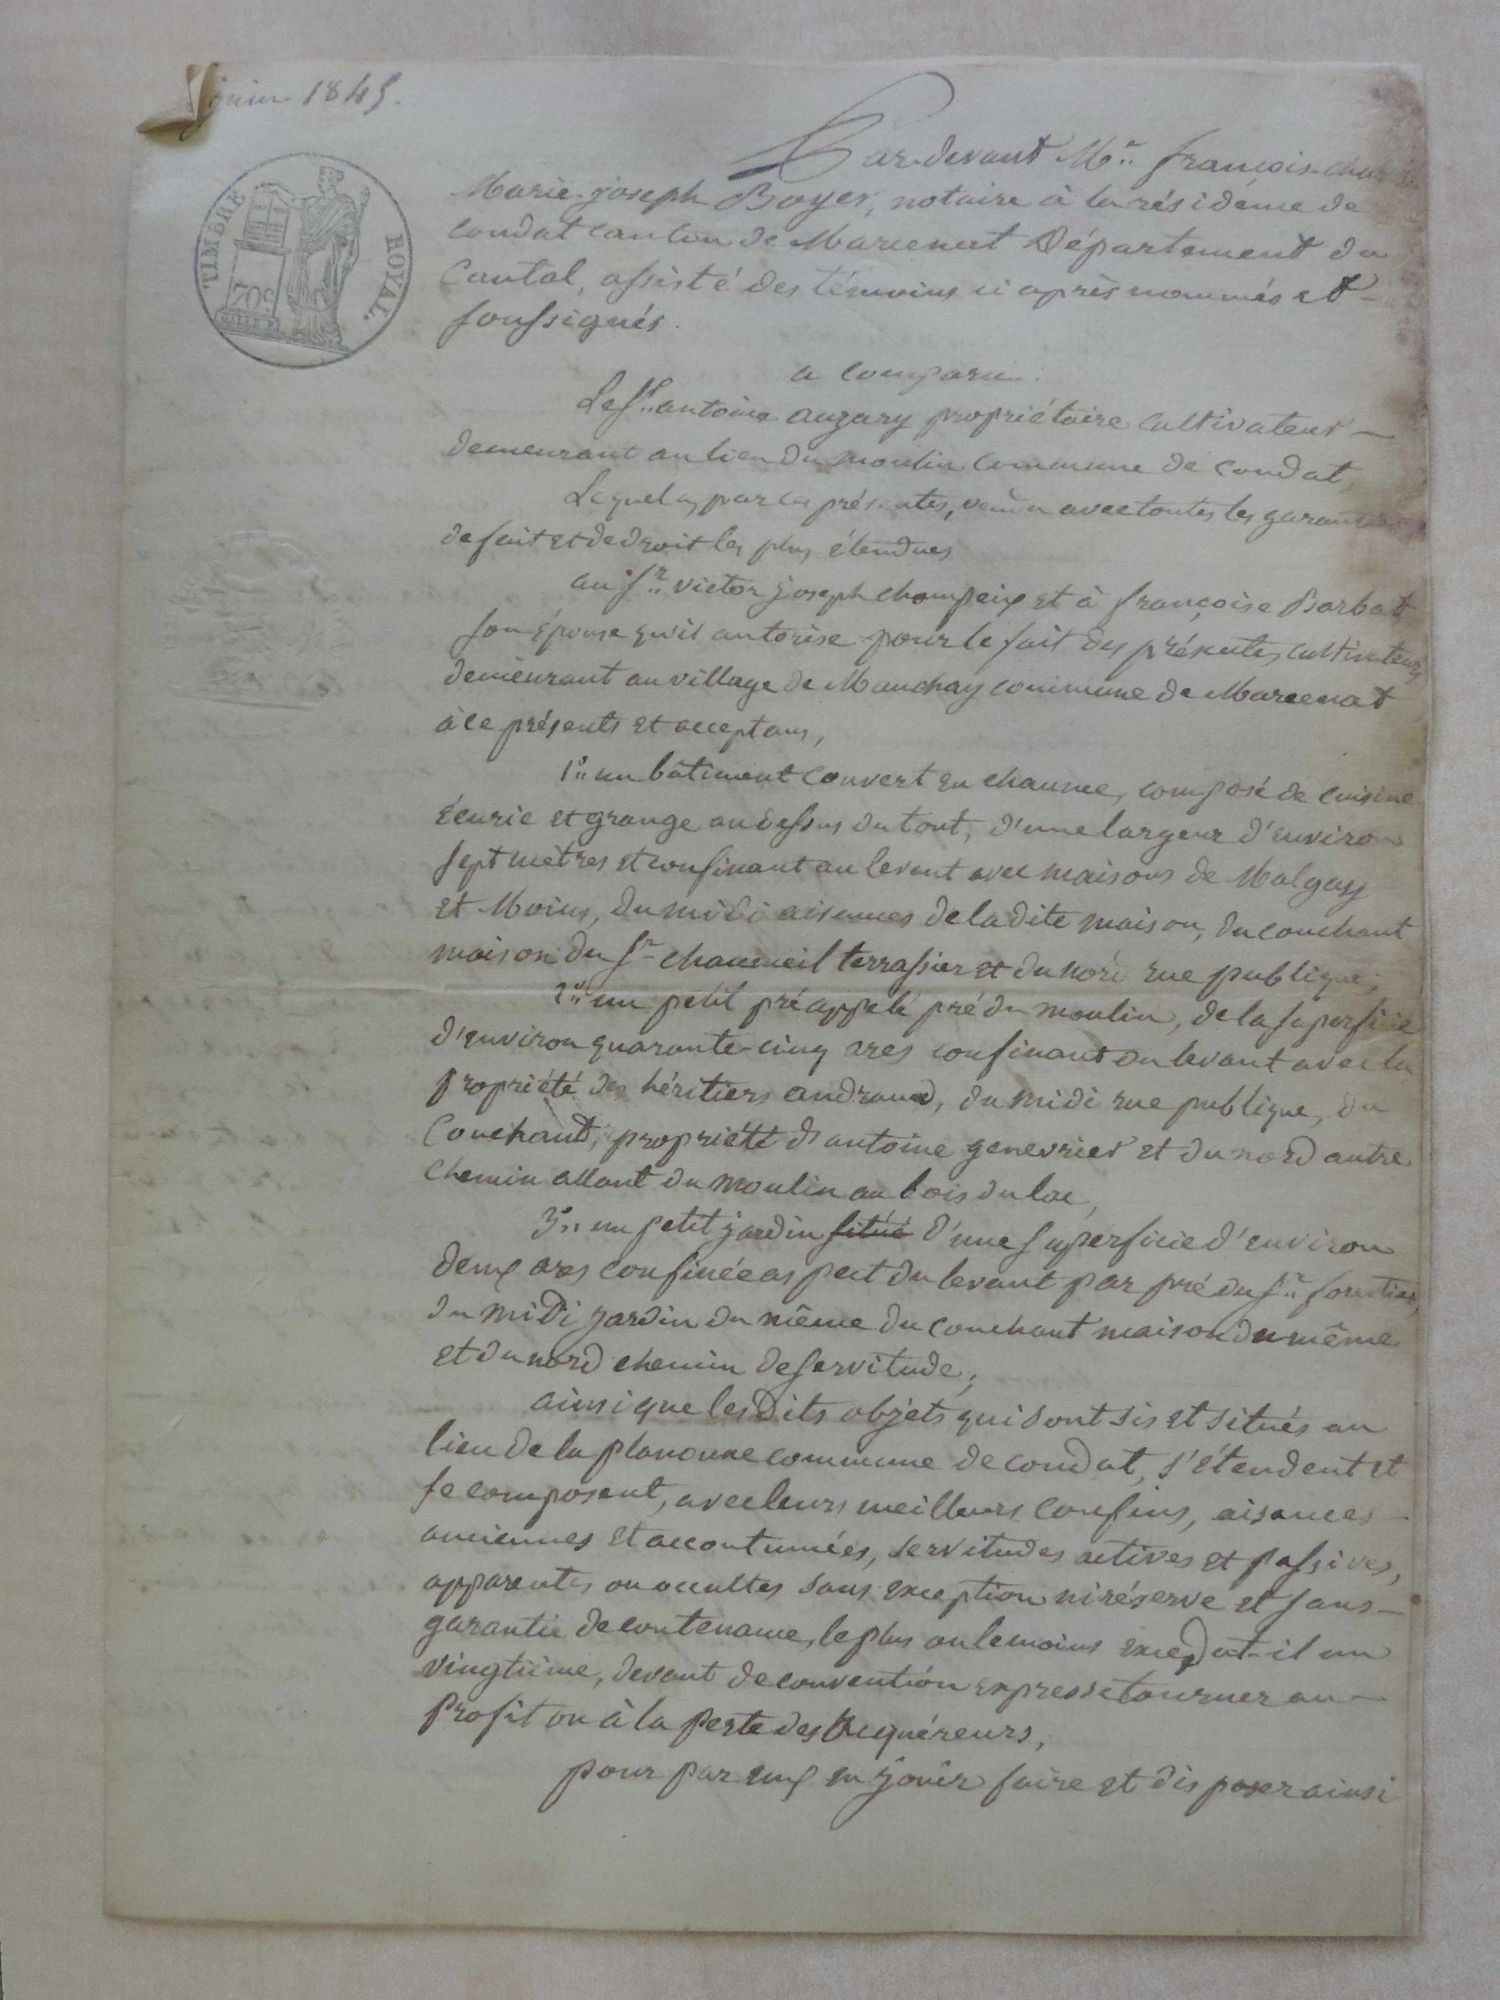 juin 1845.
TIMBRE ROYAL.
70c
Par devant Mre françois
Marie-joseph Boyer, notaire à la résidence de
Condat canton de Marcenat Département du
Cantal, assisté des témoins ci après nommés et
soussignés.
a comparu.
Le Sr. antoine auzary propriétaire cultivateur
demeurant au lieu du moulin commune de Condat,
Lequel a, par ces présentes, vendu avec toutes les garanties
de fait et de droit les plus étendues
au Sr. victor joseph champeix et à françoise Barbat
son épouse qu'il autorise pour le fait des présentes, cultivateurs
demeurant au village de Mauchay commune de Marcenat
à ce présents et acceptans,
1o. un bâtiment couvert en chaume, composé de cuisine
écurie et grange au dessus du tout, d'une largeur d'environ
sept mètres et confinant au levant avec maisons de Malgay
et Moins, du midi aisances de la dite maison, du couchant
maison du Sr chaumeil terrassier et du nord rue publique;
2o. un petit pré appelé pré du moulin, de la superficie
d'environ quarante-cinq ares confinant du levant avec la
propriété des héritiers andraud, du midi rue publique, du
Couchant, propriété d'antoine genevrier et du nord autre
chemin allant du moulin au bois du lac,
3o. un petit jardin situé d'une superficie d'environ
deux ares confinée as pect du levant par pré du Sr. forestier,
du midi jardin du même du couchant maison du même
et du nord chemin de servitude;
ainsi que les dits objets qui sont sis et situés au
lieu de la commune de condat, s'étendent et
se composent, avec leurs meilleurs confins, aisances
anciennes et accoutumées, servitudes actives et passives,
apparentes ou occultes sans exception ni réserve et sans
garantie de contenance, le plus ou le moins excédat-il un
vingtième, devant de convention expresse tourner au
profit ou à la perte des Acquéreurs,
pour par eux en jouir faire et disposer ainsi